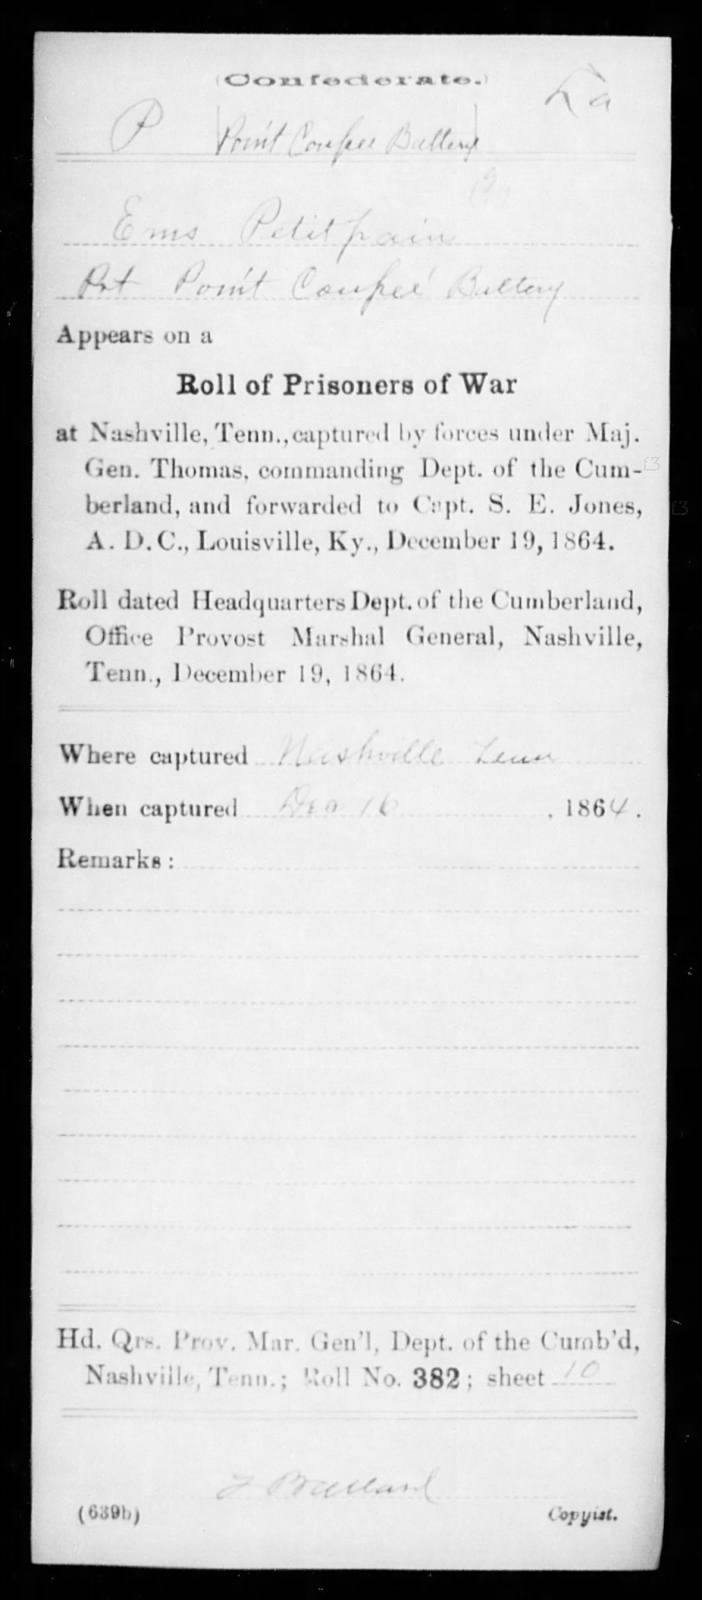 (Confederate.)
P Point Coupee Battery La
Ems Petitpain
Pvt Point Coupeé Battery
Appears on a
Roll of Prisoners of War
at Nashville, Tenn., captured by forces under Maj.
Gen. Thomas, commanding Dept. of the Cum-
berland, and forwarded to Capt. S. E. Jones,
A. D. C., Louisville, Ky., December 19, 1864.
Roll dated Headquarters Dept. of the Cumberland,
Office Provost Marshal General, Nashville,
Tenn., December 19, 1864.
Where captured Nashville Tenn
When captured Dec 16, 1864.
Remarks:
Hd. Qrs. Prov. Mar. Gen'l, Dept. of the Cumb'd,
Nashville, Tenn.; Roll No. 382; sheet 10
(639b) Copyist.